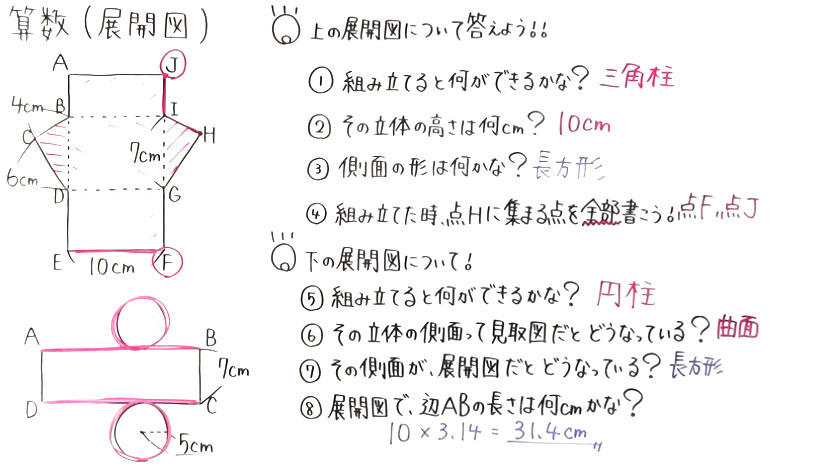 算数(展開図)
A
J
4cm
B
I
C
H
7cm
6cm
D
G
E
10cm
F
A
B
7cm
D
C
5cm
上の展開図について答えよう!!
① 組み立てると何ができるかな? 三角柱
② その立体の高さは何cm? 10cm
③ 側面の形は何かな? 長方形
④ 組み立てた時、点Hに集まる点を全部書こう! 点F, 点J
下の展開図について!
⑤ 組み立てると何ができるかな? 円柱
⑥ その立体の側面って見取図だとどうなっている? 曲面
⑦ その側面が、展開図だとどうなっている? 長方形
⑧ 展開図で、辺ABの長さは何cmかな?
10 × 3.14 = 31.4cm